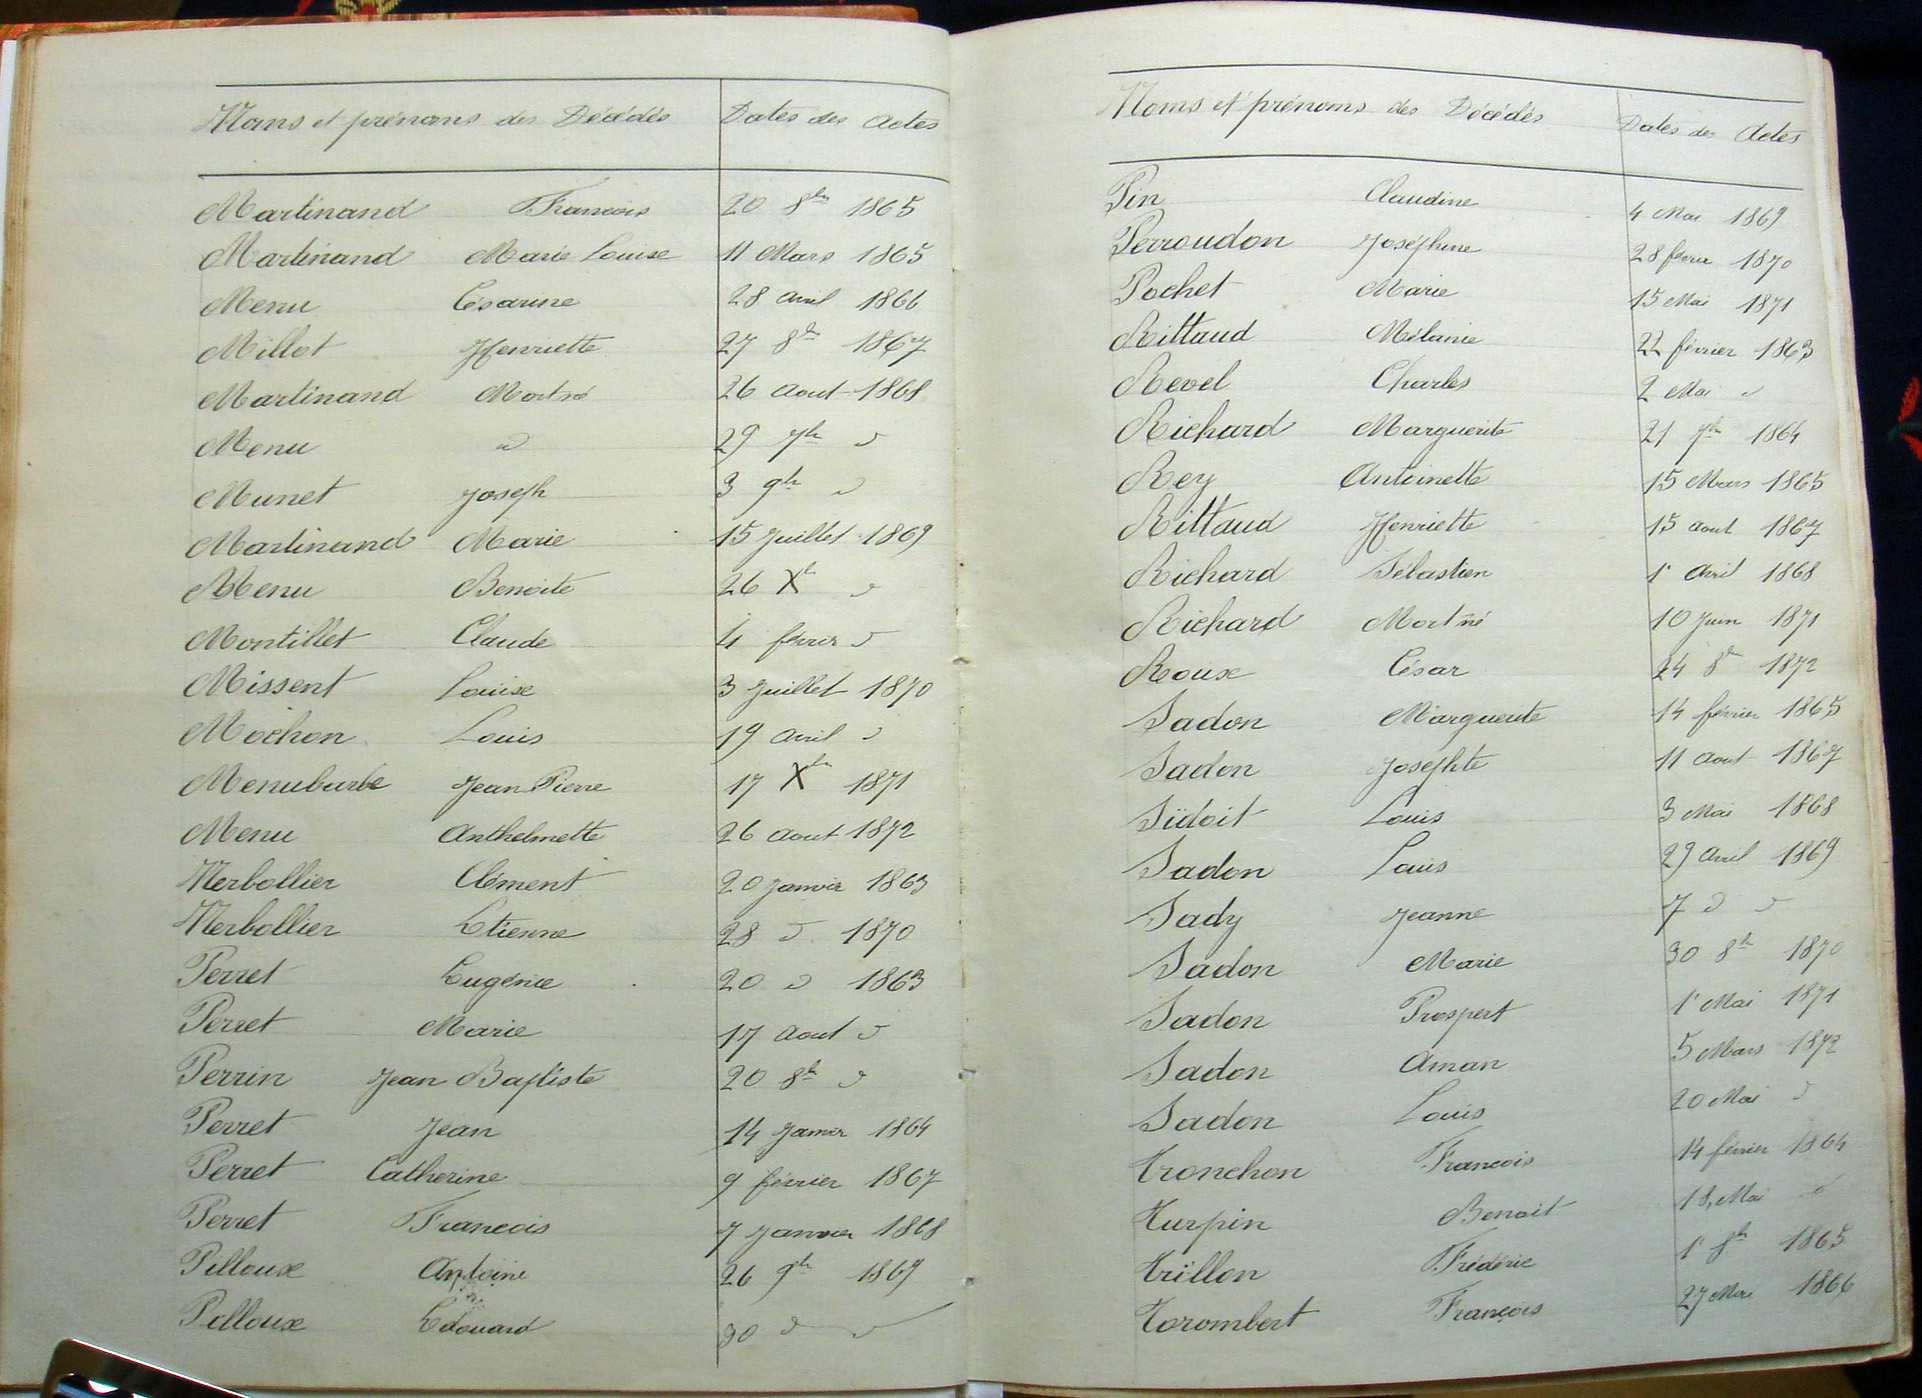 Noms et prénoms des Décédés Dates des Actes
Martinand François 20 8bre 1865
Martinand Marie Louise 11 Mars 1865
Menu Césarine 28 avril 1866
Millot Henriette 27 8bre 1867
Martinand Mortné 26 aout 1868
Menu d 29 7bre d
Munet Joseph 3 9bre d
Martinand Marie 15 Juillet 1869
Menu Benoite 26 Xbre d
Montillet Claude 4 février d
Missent Louise 3 Juillet 1870
Mochon Louis 19 avril d
Menubarbe Jean Pierre 17 Xbre 1871
Menu Anthelmette 26 aout 1872
Nerbollier Clément 20 janvier 1863
Nerbollier Etienne 28 d 1870
Perret Eugénie 20 d 1863
Perret Marie 17 aout d
Perrin Jean Baptiste 20 8bre d
Perret Jean 14 janvier 1864
Perret Catherine 9 février 1867
Perret François 7 janvier 1868
Pilloux Antoine 26 9bre 1869
Pilloux Edouard 30 d d
Noms et prénoms des Décédés Dates des Actes
Pin Claudine 4 Mai 1869
Perroudon Joséphine 28 février 1870
Pochet Marie 15 Mai 1871
Rittaud Mélanie 22 février 1863
Revel Charles 2 Mai d
Richard Marguerite 21 7bre 1864
Rey Antoinette 15 Mars 1865
Rittaud Henriette 15 aout 1867
Richard Sébastien 1er Avril 1868
Richard Mort né 10 Juin 1871
Roux César 24 8bre 1872
Sadon Marguerite 14 février 1865
Sadon Josephte 11 aout 1867
Sidoit Louis 3 Mai 1868
Sadon Louis 29 avril 1869
Sady Jeanne 7 d d
Sadon Marie 30 8bre 1870
Sadon Prospert 1er Mai 1871
Sadon Aman 5 Mars 1872
Sadon Louis 20 Mai d
Tronchon François 14 février 1864
Turpin Benoit 18 Mai d
Trillon Frédéric 1er 8bre 1865
Torombert François 27 Mai 1866